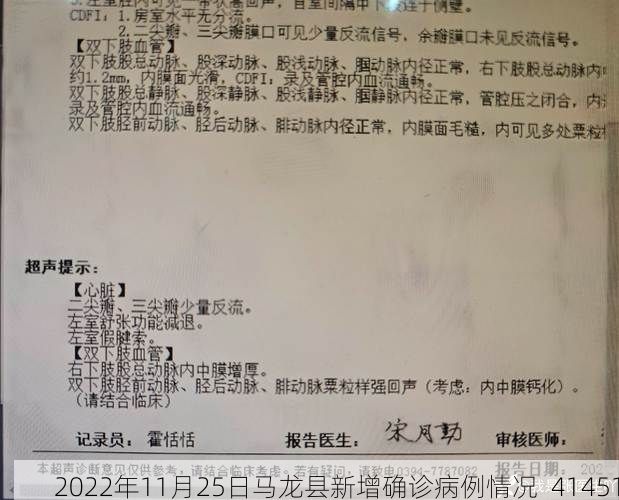 CDFI：1.房室水平无分流。
2.二尖瓣、三尖瓣膜口可见少量反流信号，余瓣膜口未见反流信号。
【双下肢血管】
双下肢股总动脉、股深动脉、股浅动脉、腘动脉内径正常，右下肢股总动脉内
约1.2mm，内膜面光滑，CDFI：录及管腔内血流通畅。
双下肢股总静脉、股深静脉、股浅静脉、腘静脉内径正常，管腔压之闭合，内
录及管腔内血流通畅。
双下肢胫前动脉、胫后动脉、腓动脉内径正常，内膜面毛糙，内可见多处粟粒样
超声提示：
【心脏】
二尖瓣、三尖瓣少量反流。
左室舒张功能减退。
左室假腱索。
【双下肢血管】
右下肢股总动脉内中膜增厚。
双下肢胫前动脉、胫后动脉、腓动脉粟粒样强回声（考虑：内中膜钙化）。
（请结合临床）
记录员：霍恬恬 报告医生： 宋月勤 审核医师：
本超声诊断意见仅供参考。若有疑问，请致电0394-7767082 报告日期：202
2022年11月25日马龙县新增确诊病例情况-41451